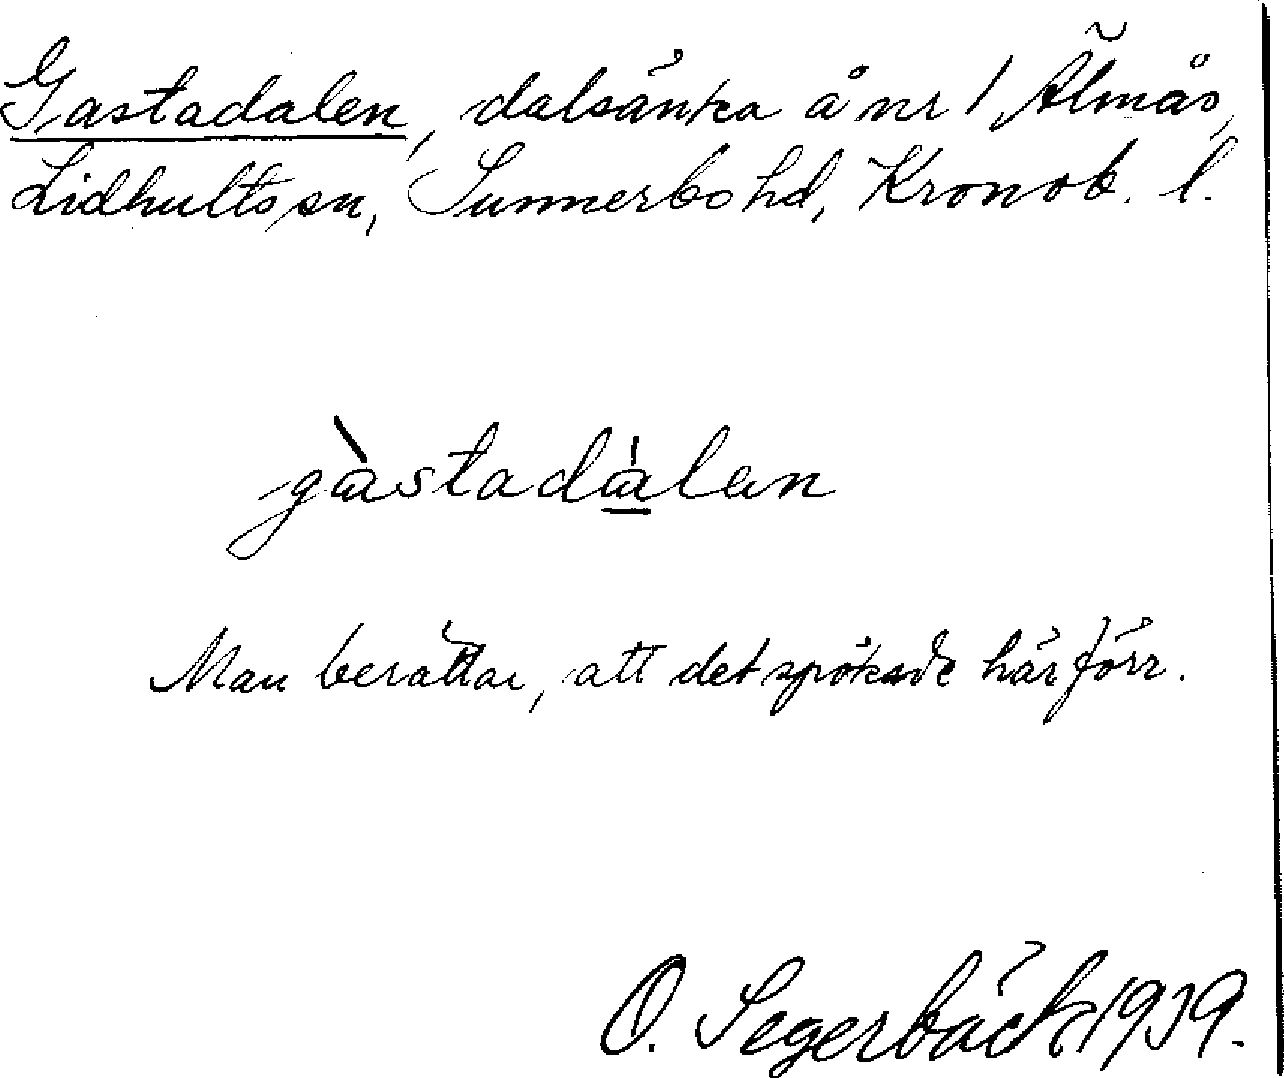 Gastadalen, dalsänka å nr 1 Älmås,
Lidhults sn, Sunnerbo hd, Kronob. l.
gàstadàlen
Man berättar, att det spökade här förr.
O. Segerbäck 1939.